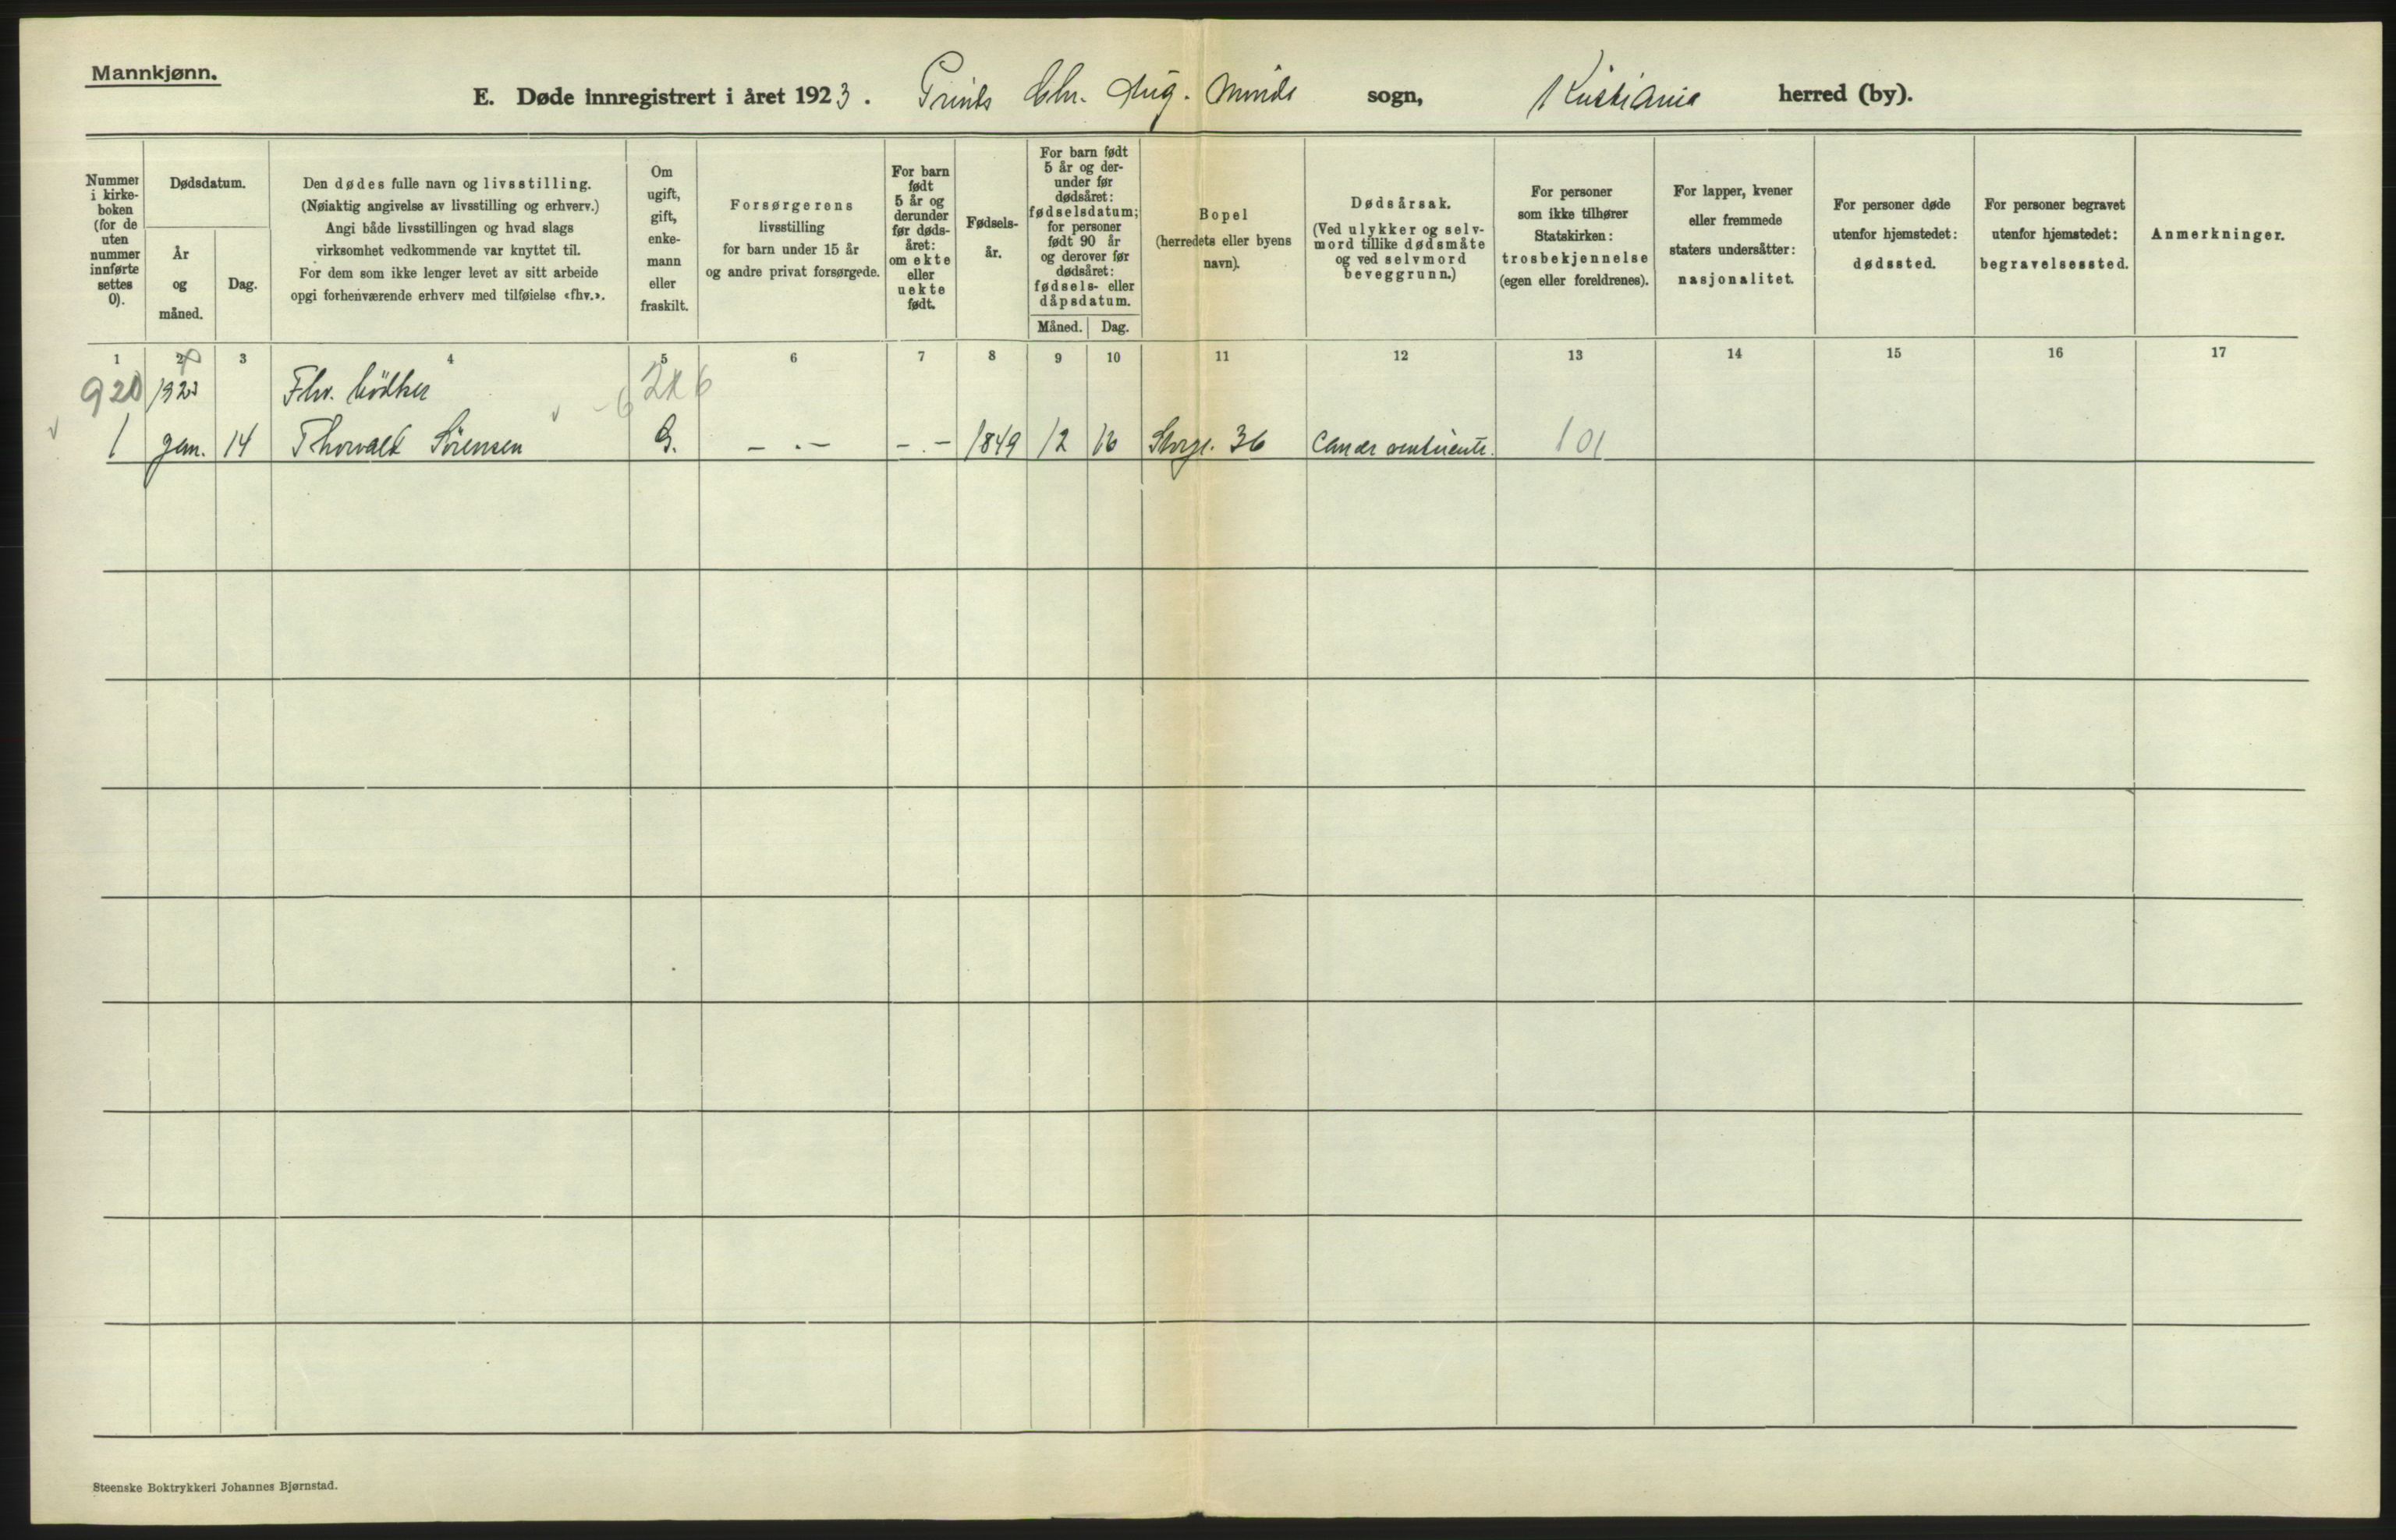 Mannkjønn.
E. Døde innregistrert i året 1923. Prints Chr. Aug. Minde sogn, Kristiania herred (by).
Nummer i kirke- boken (for de uten nummer innførte settes 0).
Dødsdatum.
År og måned.
Dag.
Den dødes fulle navn og livsstilling.
(Nøiaktig angivelse av livsstilling og erhverv.)
Angi både livsstillingen og hvad slags
virksomhet vedkommende var knyttet til.
For dem som ikke lenger levet av sitt arbeide
opgi forhenværende erhverv med tilføielse «fhv.».
Om ugift, gift, enke- mann eller fraskilt.
Forsørgerens
livsstilling
for barn under 15 år
og andre privat forsørgede.
For barn født 5 år og derunder før døds- året: om ekte eller uekte født.
Fødsels- år.
For barn født 5 år og der- under før dødsåret: fødselsdatum; for personer født 90 år og derover før dødsåret: fødsels- eller dåpsdatum.
Måned. Dag.
Bopel
(herredets eller byens
navn).
Dødsårsak.
(Ved ulykker og selv-
mord tillike dødsmåte
og ved selvmord
beveggrunn.)
For personer
som ikke tilhører
Statskirken:
trosbekjennelse
(egen eller foreldrenes).
For lapper, kvener
eller fremmede
staters undersåtter:
nasjonalitet.
For personer døde
utenfor hjemstedet:
dødssted.
For personer begravet
utenfor hjemstedet:
begravelsessted.
Anmerkninger.
1 2 3 4 5 6 7 8 9 10 11 12 13 14 15 16 17
920 1923 Fhv. bödker
1 Jan. 14 Thorvald Sörensen G. - . - - . - 1849 12 16 Storg. 36 Cancer ventriculi. 101
Steenske Boktrykkeri Johannes Bjørnstad.